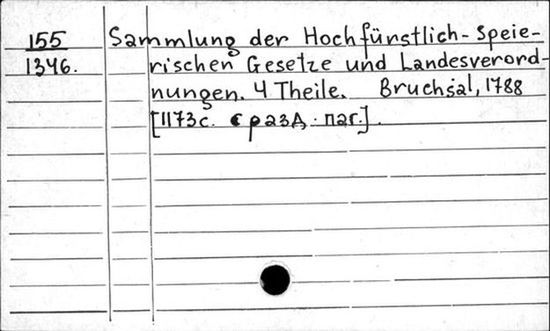 155 Sammlung der Hochfürstlich-Speie-
1346. rischen Gesetze und Landesverord-
nungen. 4 Theile. Bruchsal, 1788
[1173с. с разд. паг.].